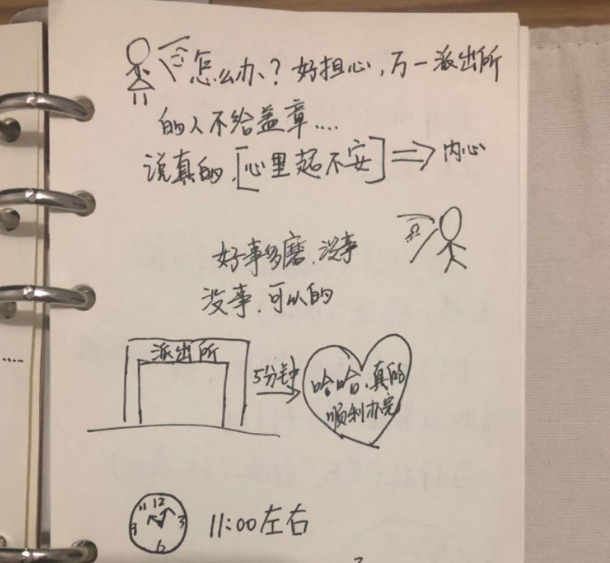 怎么办?好担心,万一派出所
的人不给盖章....
说真的,[心里超不安]⇒内心
好事多磨,没事
没事,可以的
派出所
5分钟
哈哈,真的
顺利办完
11 12
9 3
6
11:00左右